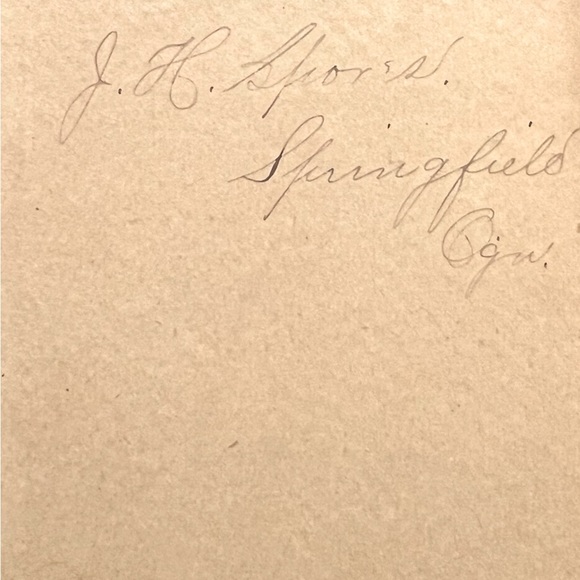 J. H. Spores.
Springfield
Ogn.